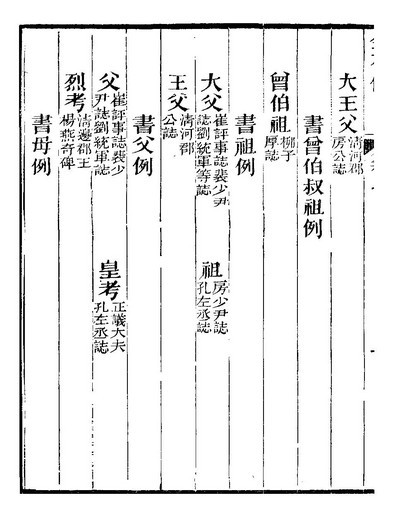 大王父清河郡房公誌
書曾伯叔祖例
曾伯祖柳子厚誌
書祖例
大父崔評事誌裴少尹誌劉統軍等誌 祖房少尹誌孔左丞誌
王父清河郡公誌
書父例
父崔評事誌裴少尹誌劉統軍誌 皇考正議大夫孔左丞誌
烈考清邊郡王楊燕奇碑
書母例